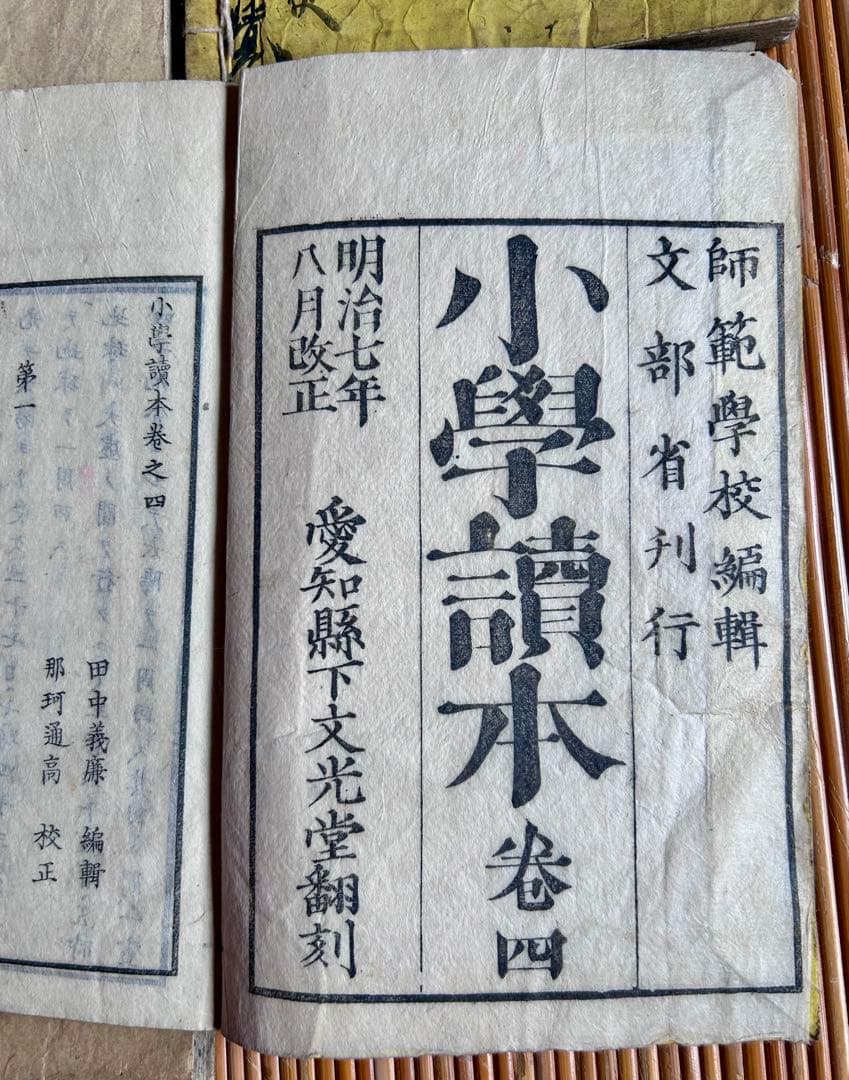 師範學校編輯
文部省刊行
小學讀本 卷四
明治七年
八月改正
愛知縣下文光堂翻刻
小學讀本卷之四
田中義廉 編輯
那珂通高 校正
第一